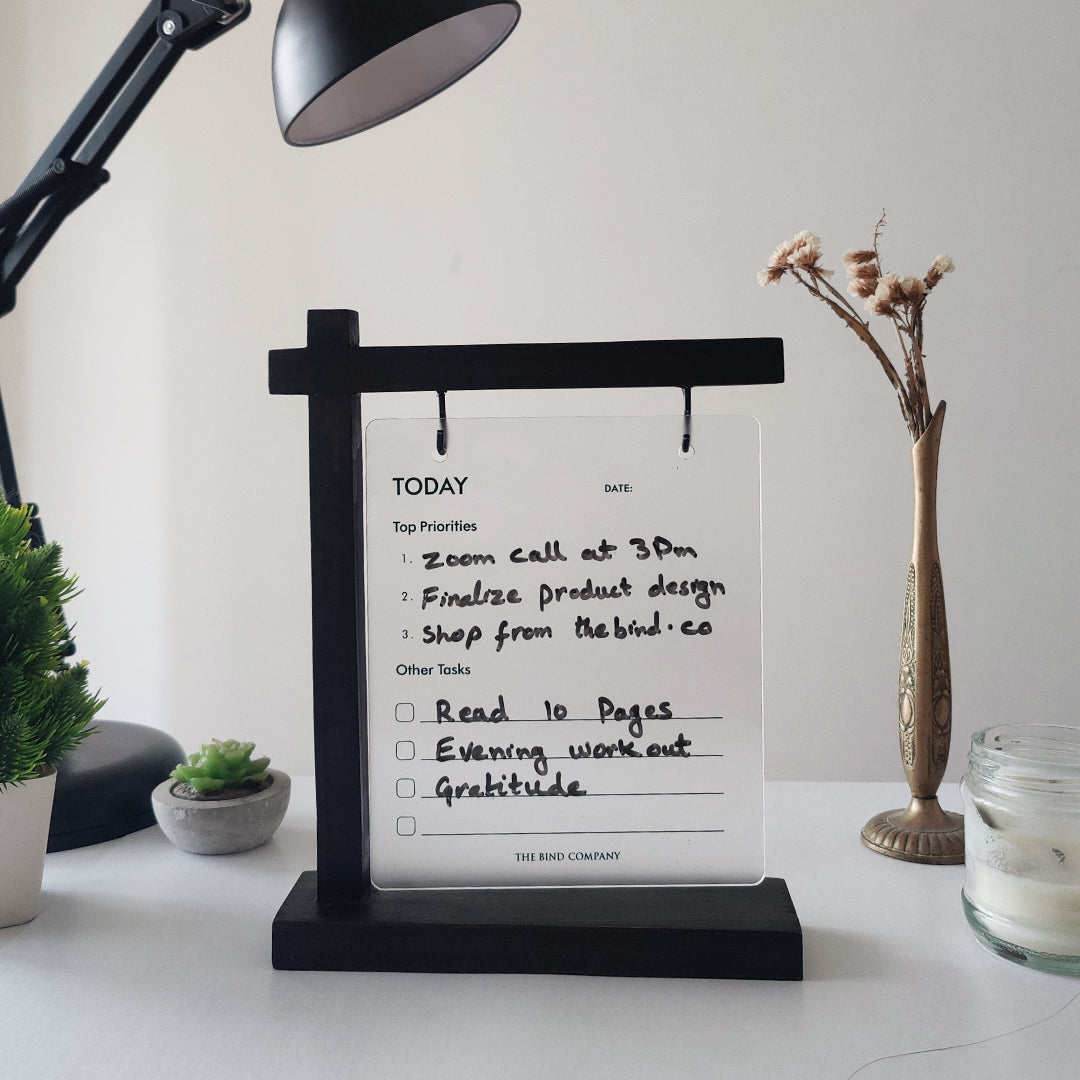 TODAY DATE:
Top Priorities
1. Zoom call at 3Pm
2. Finalize product design
3. Shop from thebind.co
Other Tasks
Read 10 Pages
Evening workout
Gratitude
THE BIND COMPANY